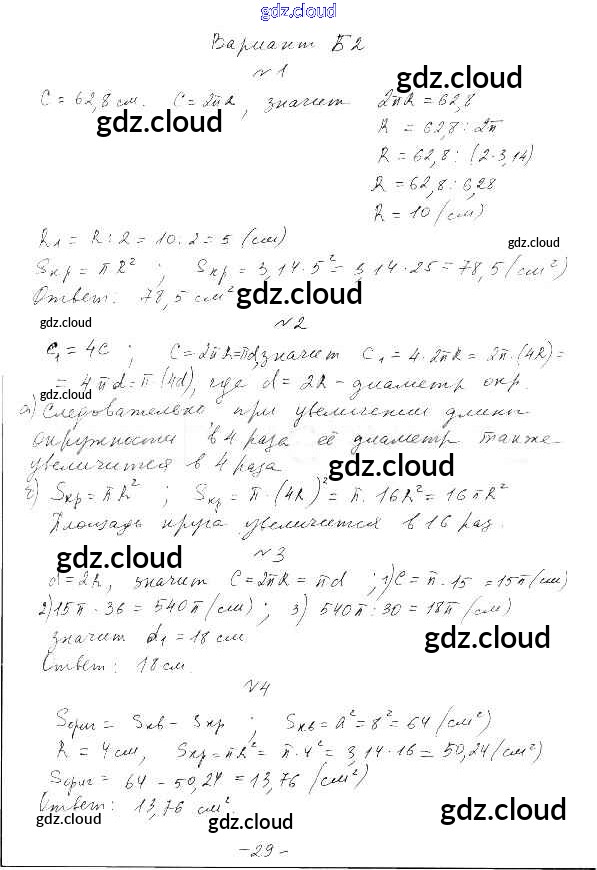 gdz.cloud
Вариант Б2
№1
gdz.cloud
C = 62,8 см. C = 2πR, значит 2πR = 62,8
gdz.cloud
R = 62,8 : 2π
R = 62,8 : (2·3,14)
R = 62,8 : 6,28
R = 10 (см)
R₁ = R : 2 = 10 : 2 = 5 (см)
gdz.cloud
Sкр = πR² ; Sкр = 3,14·5² = 3,14·25 = 78,5 (см²)
Ответ: 78,5 см²
gdz.cloud
gdz.cloud
№2
C₁ = 4C ; C = 2πR = πd, значит C₁ = 4·2πR = 2π·(4R) =
= 4πd = π·(4d), где d = 2R - диаметр окр.
gdz.cloud
а) Следовательно при увеличении длины
окружности в 4 раза её диаметр также
увеличится в 4 раза
gdz.cloud
б) Sкр = πR² ; Sкр = π·(4R)² = π·16R² = 16πR²
Площадь круга увеличится в 16 раз.
№3
gdz.cloud
d = 2R, значит C = 2πR = πd ; 1) C = π·15 = 15π (см)
2) 15π·36 = 540π (см) ; 3) 540π : 30 = 18π (см)
значит d₁ = 18 см
gdz.cloud
Ответ: 18 см.
№4
Sфиг = Sкв - Sкр ; Sкв = a² = 8² = 64 (см²)
R = 4 см, Sкр = πR² = π·4² = 3,14·16 = 50,24 (см²)
Sфиг = 64 - 50,24 = 13,76 (см²)
Ответ: 13,76 см²
gdz.cloud
gdz.cloud
gdz.cloud
-29-